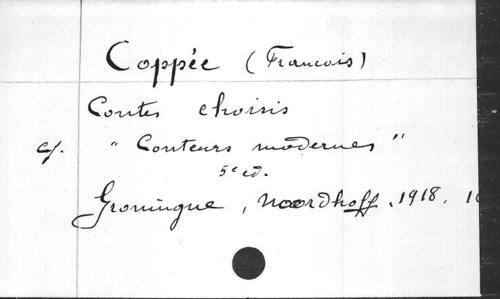 Coppée (Francois)
Contes choisis
cf. "Conteurs modernes"
5e ed.
Groningue, Noordhoff, 1918,